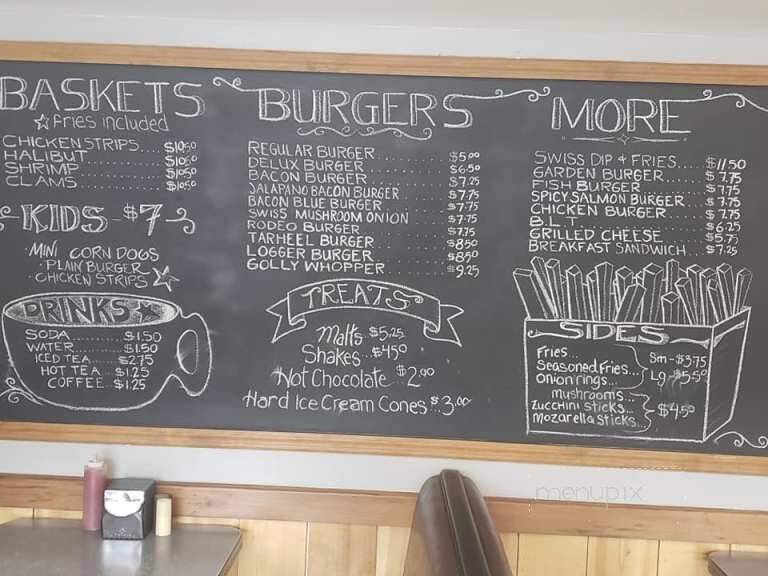 BASKETS
☆ fries included
CHICKEN STRIPS.....$10.50
HALIBUT............$10.50
SHRIMP.............$10.50
CLAMS..............$10.50
KIDS - $7
MINI CORN DOGS
· PLAIN BURGER
· CHICKEN STRIPS ☆
DRINKS ☆
SODA.........$1.50
WATER........$1.50
ICED TEA.....$2.75
HOT TEA...$1.25
COFFEE...$1.25
BURGERS
REGULAR BURGER............$5.00
DELUX BURGER..............$6.50
BACON BURGER..............$7.25
JALAPANO BACON BURGER.....$7.75
BACON BLUE BURGER.........$7.75
SWISS MUSHROOM ONION......$7.75
RODEO BURGER..............$7.75
TARHEEL BURGER............$8.50
LOGGER BURGER.............$8.50
GOLLY WHOPPER.............$9.25
TREATS
Malts...$5.25
Shakes...$4.50
Hot Chocolate...$2.00
Hard Ice Cream Cones...$3.00
MORE
SWISS DIP & FRIES.....$11.50
GARDEN BURGER.........$7.75
FISH BURGER...........$7.75
SPICY SALMON BURGER...$7.75
CHICKEN BURGER........$7.75
B.L.T.................$6.25
GRILLED CHEESE........$5.75
BREAKFAST SANDWICH....$7.25
SIDES
Fries...
Seasoned Fries...
Onion rings...
Sm - $3.75
Lg - $5.50
mushrooms...
Zucchini Sticks...
Mozarella Sticks...
$4.50
menupix